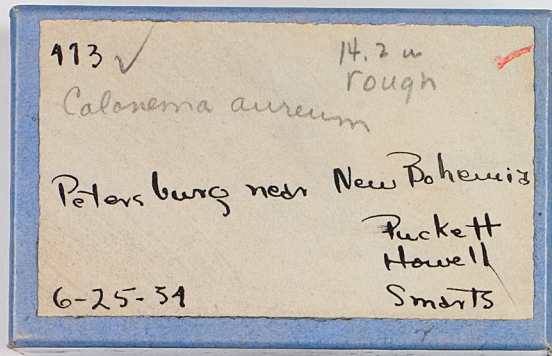 113 ✓ 14.2 u
rough
Calonema aureum
Petersburg near New Bohemia
Puckett
Howell
6-25-54 Smarts